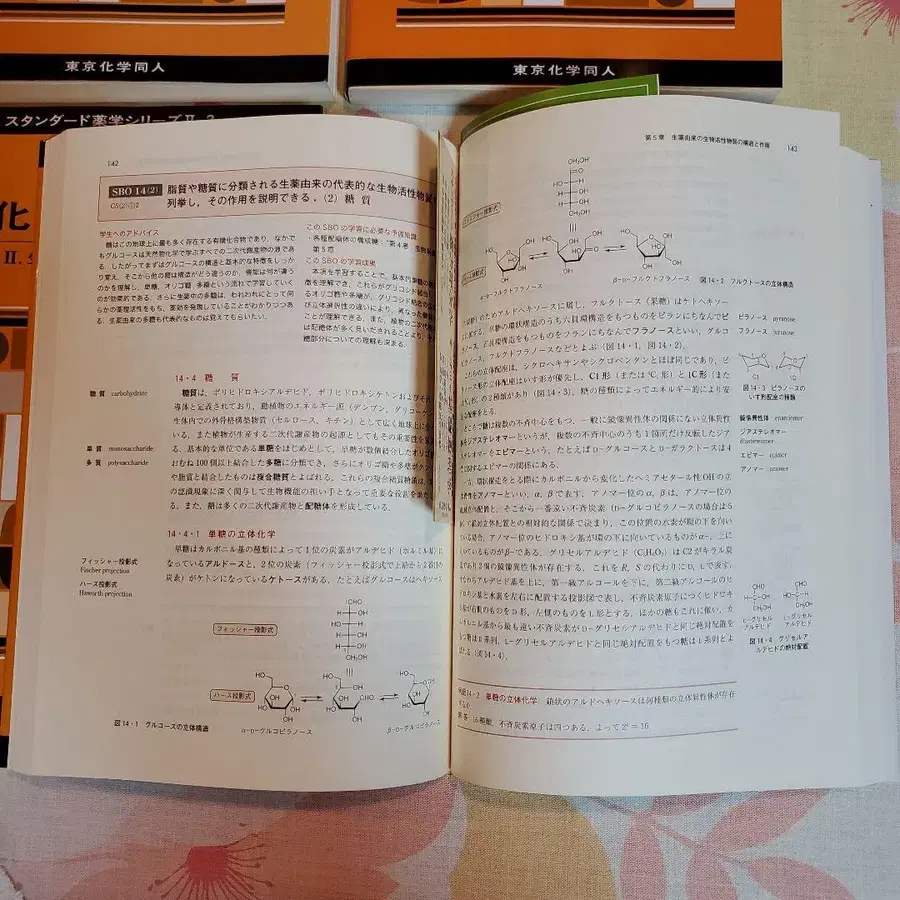 東京化学同人
東京化学同人
スタンダード薬学シリーズⅡ
化
Ⅱ.
142
SBO 14(2) 脂質や糖質に分類される生薬由来の代表的な生物活性物質
C5(2)①2 列挙し,その作用を説明できる.(2) 糖 質
学生へのアドバイス
糖はこの地球上に最も多く存在する有機化合物であり,なかで
もグルコースは天然物化学で学ぶすべての二次代謝産物の源であ
る.したがってまずはグルコースの構造と基本的な特徴をしっか
り覚え,そこから他の糖は構造がどう違うのか,機能は何が違う
のかを理解し,単糖,オリゴ糖,多糖という流れで学習していく
のが効果的である.さらに生薬中の多糖は,われわれにとって何
らかの薬理活性をもち,薬効を発現していることがわかりつつあ
る.生薬由来の多糖も代表的なものは覚えてもらいたい.
このSBOの学習に必要な予備知識
・各種配糖体の構成糖:
第5章
このSBOの学習成果
本項を学習することで,基本的単糖の
徴を理解でき,これらがグリコシド結合
るオリゴ糖や多糖が,グリコシド結合の
び立体選択性の違いにより,異なった
ことが理解できる.また,植物の二次代
は配糖体が多く見いだされることより,
糖部分についての理解も深まる.
14・4 糖 質
糖 質 carbohydrate
糖質は,ポリヒドロキシアルデヒド,ポリヒドロキシケトンおよびそれ
導体と定義されており,動植物のエネルギー源(デンプン,グリコーゲン
生体内での外骨格構築物質(セルロース,キチン)として広く地球上に
いる.また植物が生産する二次代謝産物の起源としてもその重要性を
単 糖 monosaccharide
る.基本的な単位である単糖をはじめとして,単糖が数個結合したオリゴ
多 糖 polysaccharide
おむね100個以上結合した多糖に分類でき,さらにオリゴ糖や多糖がタン
や脂質と結合したものは複合糖質とよばれる.これらの複合糖質糖鎖は,
の認識現象に深く関与して生物機能の担い手となって重要な役割を果た
る.また,糖は多くの二次代謝産物と配糖体を形成している.
14・4・1 単糖の立体化学
単糖はカルボニル基の種類によって1位の炭素がアルデヒド(ホルミル基)に
フィッシャー投影式
Fischer projection
なっているアルドースと,2位の炭素(フィッシャー投影式で上端から2番目の
ハース投影式
Haworth projection
炭素)がケトンになっているケトースがある.たとえばグルコースはヘキソース
フィッシャー投影式
ハース投影式
図14・1 グルコースの立体構造
α-D-グルコピラノース
β-D-グルコピラノース
第5章 生薬由来の生物活性物質の構造と作用 143
フィッシャー投影式
ハース投影式
α-D-フルクトフラノース
β-D-フルクトフラノース
図14・2 フルクトースの立体構造
のためアルドヘキソースに属し,フルクトース(果糖)はケトヘキソー
に属する.単糖の環状構造のうち六員環構造をもつものをピランにちなんでピ
ラノース,五員環構造をもつものをフランにちなんでフラノースといい,グルコ
ピラノース,フルクトフラノースなどとよぶ(図14・1,図14・2).
ピラノース pyranose
フラノース furanose
これらの立体配座は,シクロヘキサンやシクロペンタンとほぼ同じであり,ピ
ラノース形の立体配座はいす形が優先し,C1形
と1C形(また
の2種類があり(図14・3),糖の種類によってエネルギー的により安
C1
1C
図14・3 ピラノースの
いす形配座の種類
ところで糖は複数の不斉中心をもつ.一般に鏡像異性体の関係にない立体異性
体をジアステレオマーというが,複数の不斉中心のうち1箇所だけ反転したジア
ステレオマーをエピマーという.たとえばD-グルコースとD-ガラクトースは4
に関するエピマーの関係にある.
鏡像異性体 enantiomer
ジアステレオマー
diastereomer
エピマー epimer
アノマー anomer
一方,環状構造をとる際にカルボニルから変化したヘミアセタール性OHの立
体異性をアノマーといい,α,βで表す.アノマー位のα,βは,アノマー位の
立体配置と,そこから一番遠い不斉炭素(D-グルコピラノースの場合は5
位)の絶対立体配置との相対的な関係で決まり,この位置の水素が環の下を向い
ている場合,アノマー位のヒドロキシ基が環の下に向いているものがα-,上に
向いているものがβ-である.グリセルアルデヒド(C₃H₆O₃)はC2がキラル炭
素であり2個の鏡像異性体が存在する.これをR,Sの代わりにD,Lで表す.
すなわちアルデヒド基を上に,第一級アルコールを下に,第二級アルコールのヒ
ドロキシ基と水素を左右に配置する投影図で表し,不斉炭素原子につくヒドロキ
シ基が右側のものをD形,左側のものをL形とする.ほかの糖もこれに倣い,カ
ルボニル基から最も遠い不斉炭素がD-グリセルアルデヒドと同じ絶対配置を
もつ糖はD系列,L-グリセルアルデヒドと同じ絶対配置をもつ糖はL系列とよ
ばれる(図14・4).
L-グリセル
アルデヒド
D-グリセル
アルデヒド
図14・4 グリセルア
ルデヒドの絶対配置
例題14・2 単糖の立体化学 鎖状のアルドヘキソースは何種類の立体異性体が存在
するか.
解 答 16種類.不斉炭素原子は四つある.よって2⁴=16